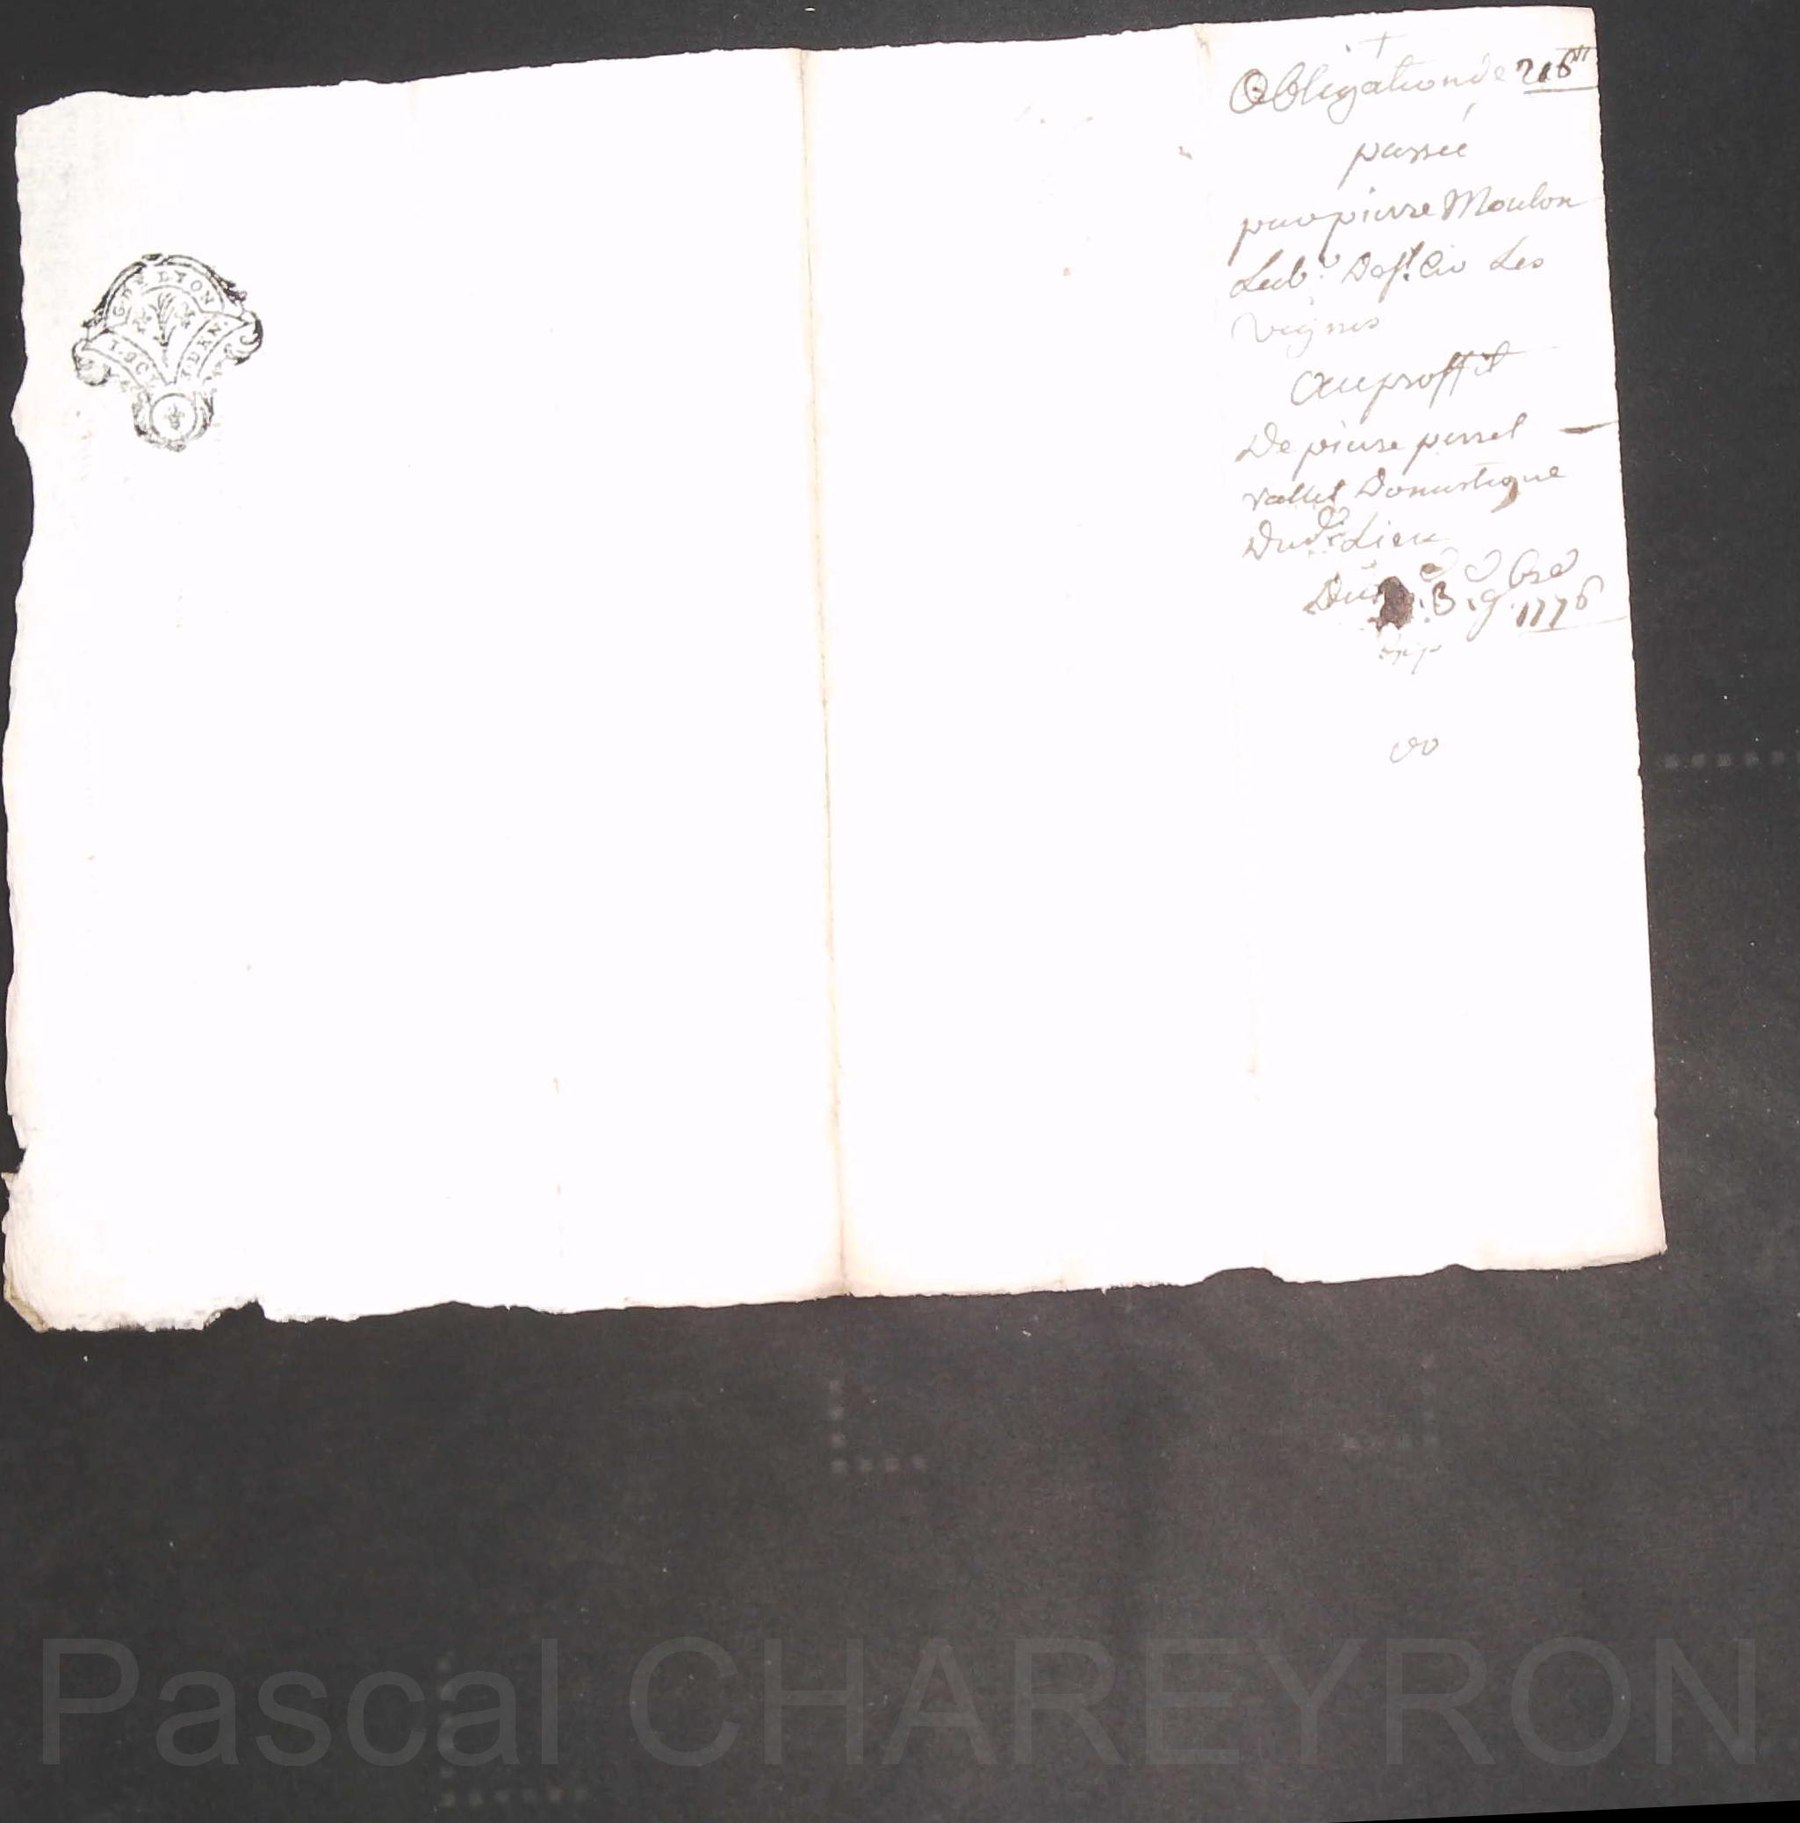 G. DE LYON
+
Obligation de 216tt
passée
par pierre Moulon
Lab.r de st Cir Les
vignes
au proffit
De pierre perret
vallet Domestique
Dudt Lieu
Du 3 9bre 1776
Pascal CHAREYRON